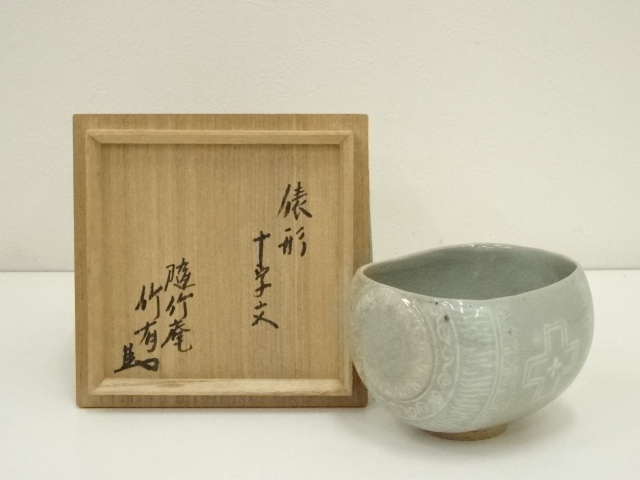 俵形
十字文
随竹庵
竹有